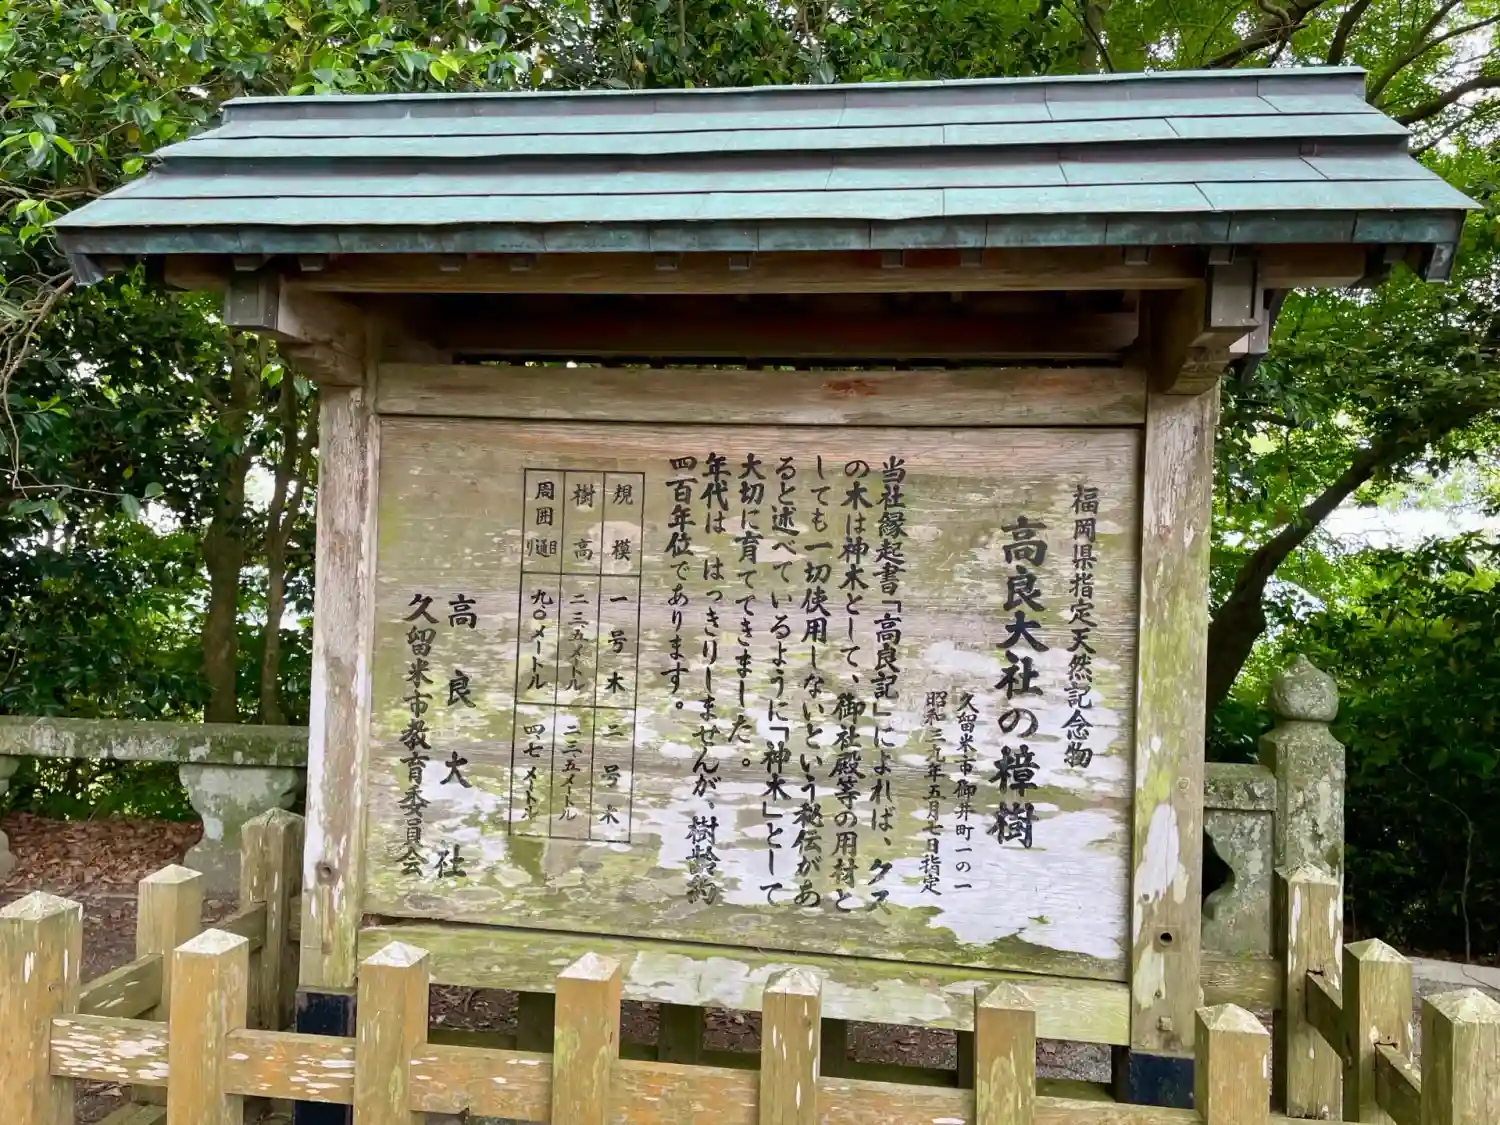 福岡県指定天然記念物
高良大社の樟樹
久留米市御井町一の一
昭和三九年五月七日指定
当社縁起書「高良記」によれば、クス
の木は神木として、御社殿等の用材と
しても一切使用しないという秘伝があ
ると述べているように「神木」として
大切に育ててきました。
年代は はっきりしませんが、樹齢約
四百年位であります。
規模 一号木 二号木
樹高 二三.五メートル 二三.五メートル
周囲目通り 九.〇メートル 四.七メートル
高良大社
久留米市教育委員会